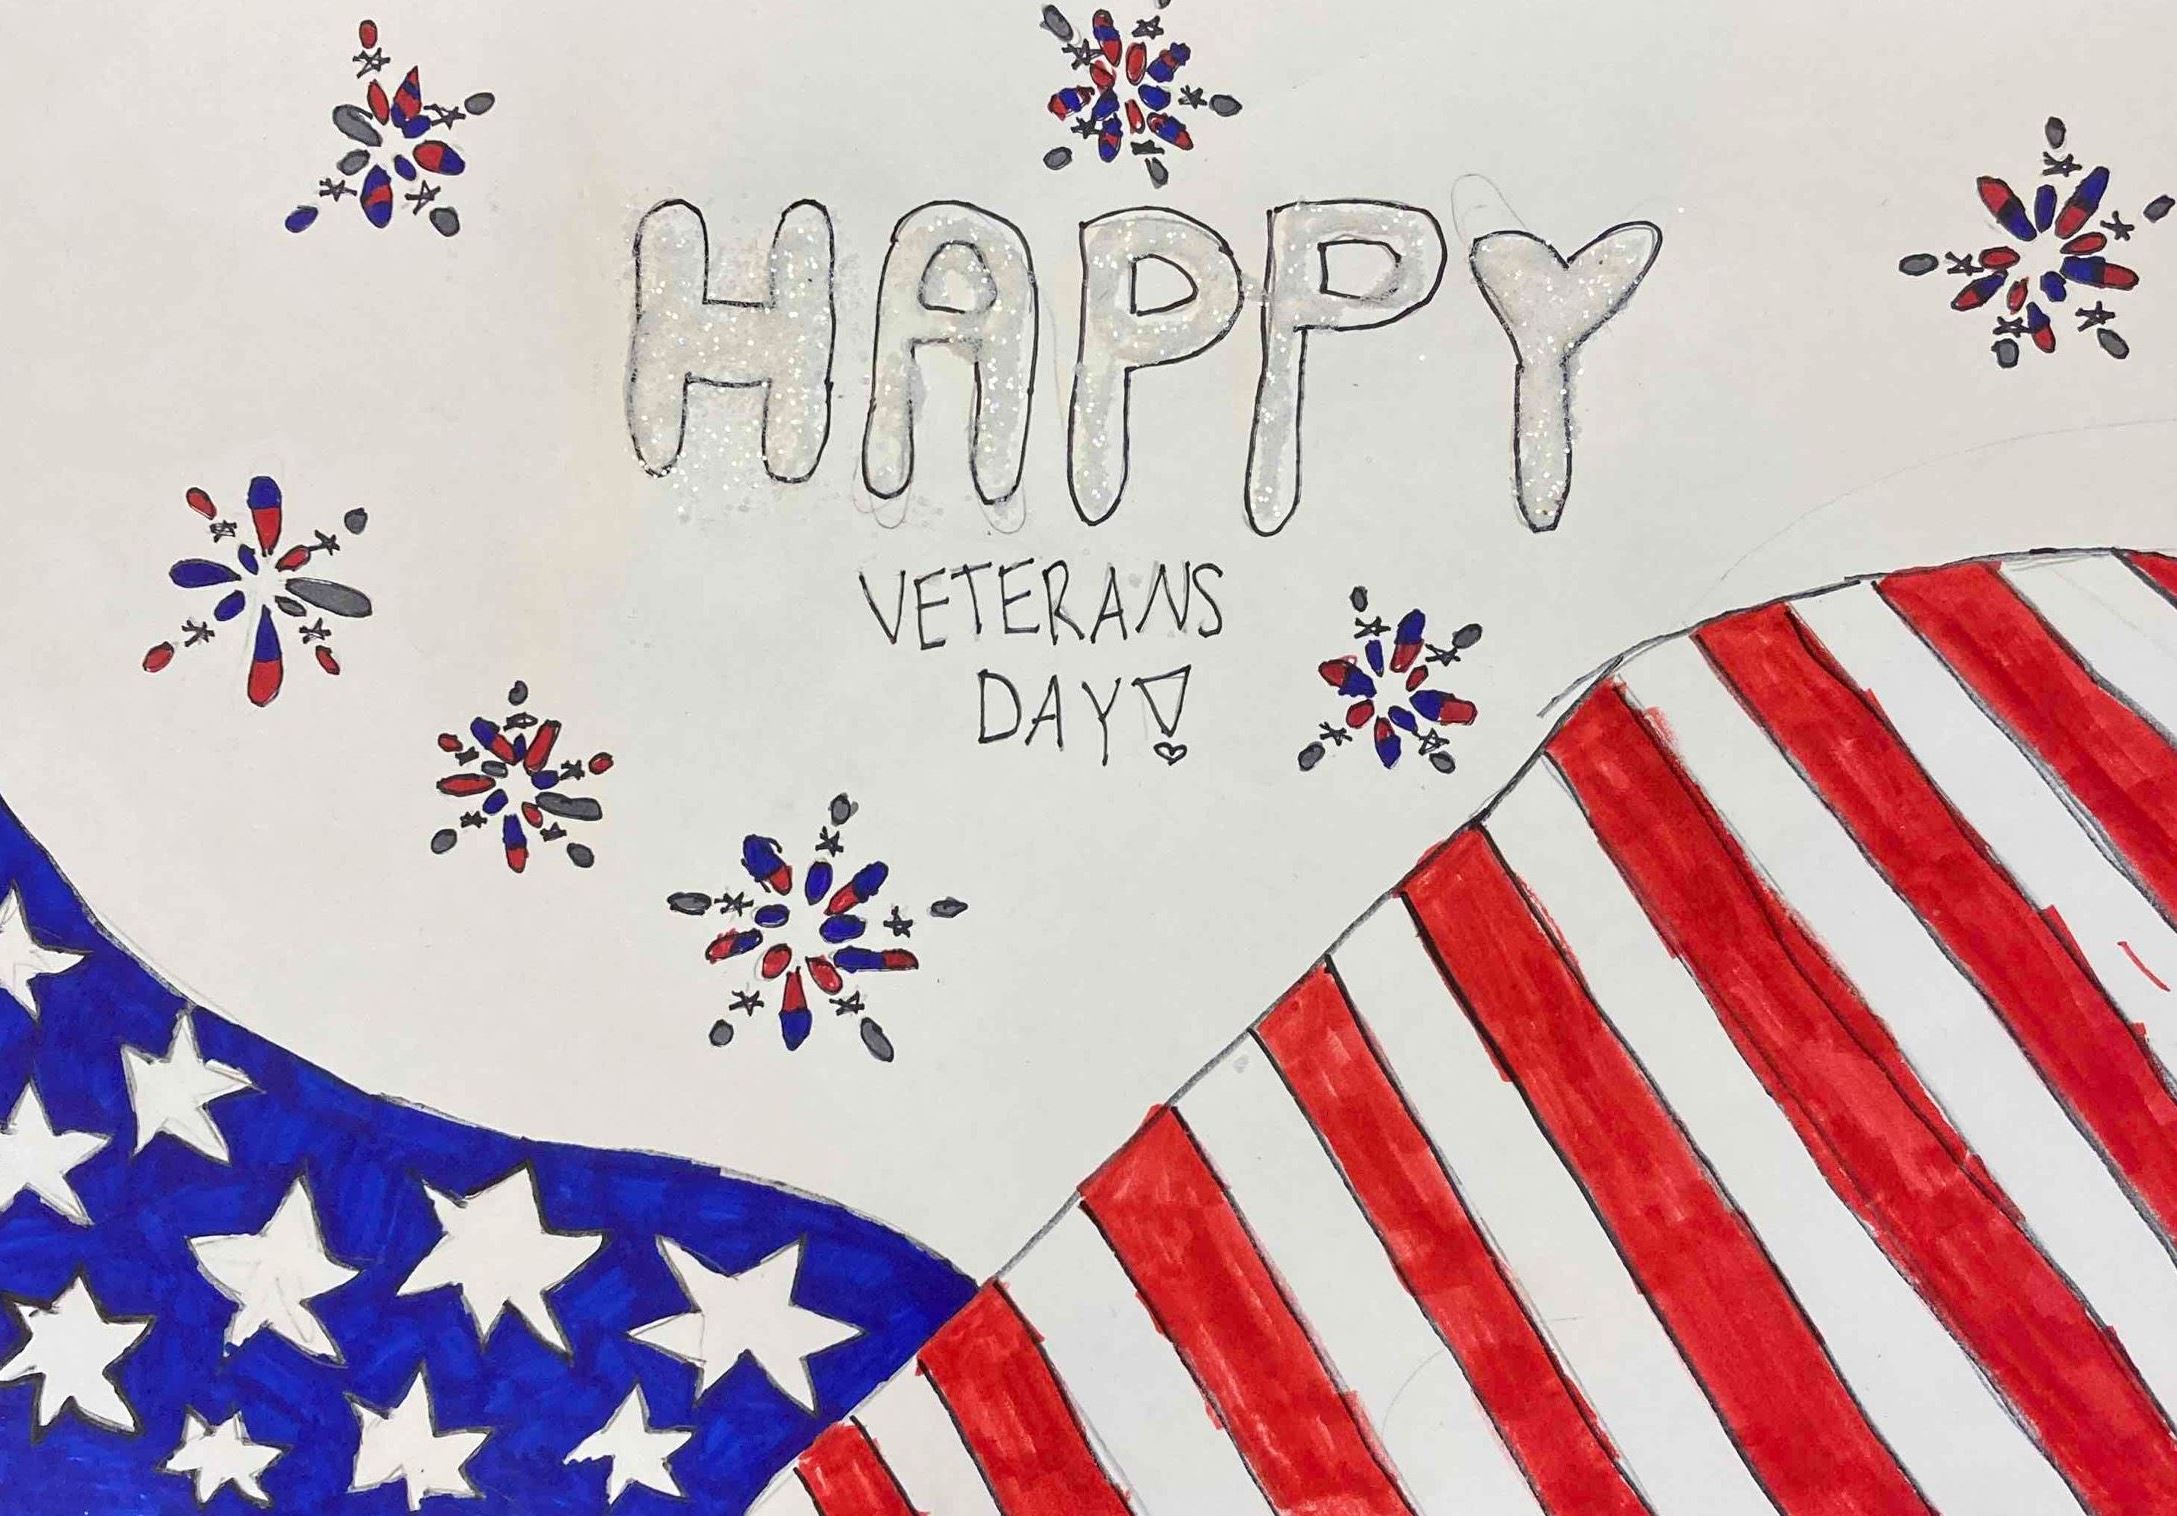 HAPPY
VETERANS
DAY!